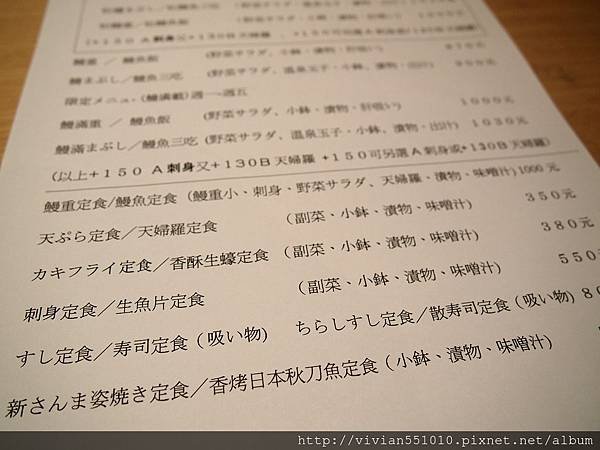 鰻重 / 鰻魚飯 (野菜サラダ、小鉢、漬物、肝吸い)
鰻まぶし/鰻魚三吃 (野菜サラダ、温泉玉子、小鉢、漬物、出汁) 900元
限定メニュー(鰻滿載)週一~週五
鰻滿重 / 鰻魚飯 (野菜サラダ、小鉢、漬物、肝吸い) 1000元
鰻滿まぶし/鰻魚三吃 (野菜サラダ、温泉玉子、小鉢、漬物、出汁) 1030元
(以上+150 A刺身又+130B天婦羅 +150可另選A刺身或+130B天婦羅)
鰻重定食/鰻魚定食 (鰻重小、刺身、野菜サラダ、天婦羅、漬物、味噌汁) 1000元
天ぷら定食/天婦羅定食 (副菜、小鉢、漬物、味噌汁) 350元
カキフライ定食/香酥生蠔定食 (副菜、小鉢、漬物、味噌汁) 380元
刺身定食/生魚片定食 (副菜、小鉢、漬物、味噌汁) 550
すし定食/寿司定食(吸い物) ちらしすし定食/散寿司定食(吸い物)
新さんま姿焼き定食/香烤日本秋刀魚定食(小鉢、漬物、味噌汁)
http://vivian551010.pixnet.net/album